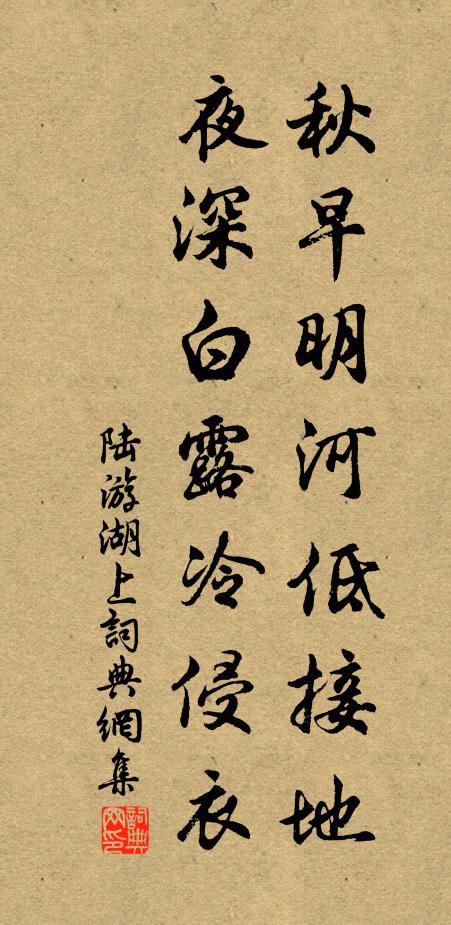 秋早明河低接地
夜深白露冷侵衣
陆游湖上詞典網集
詞典
网印